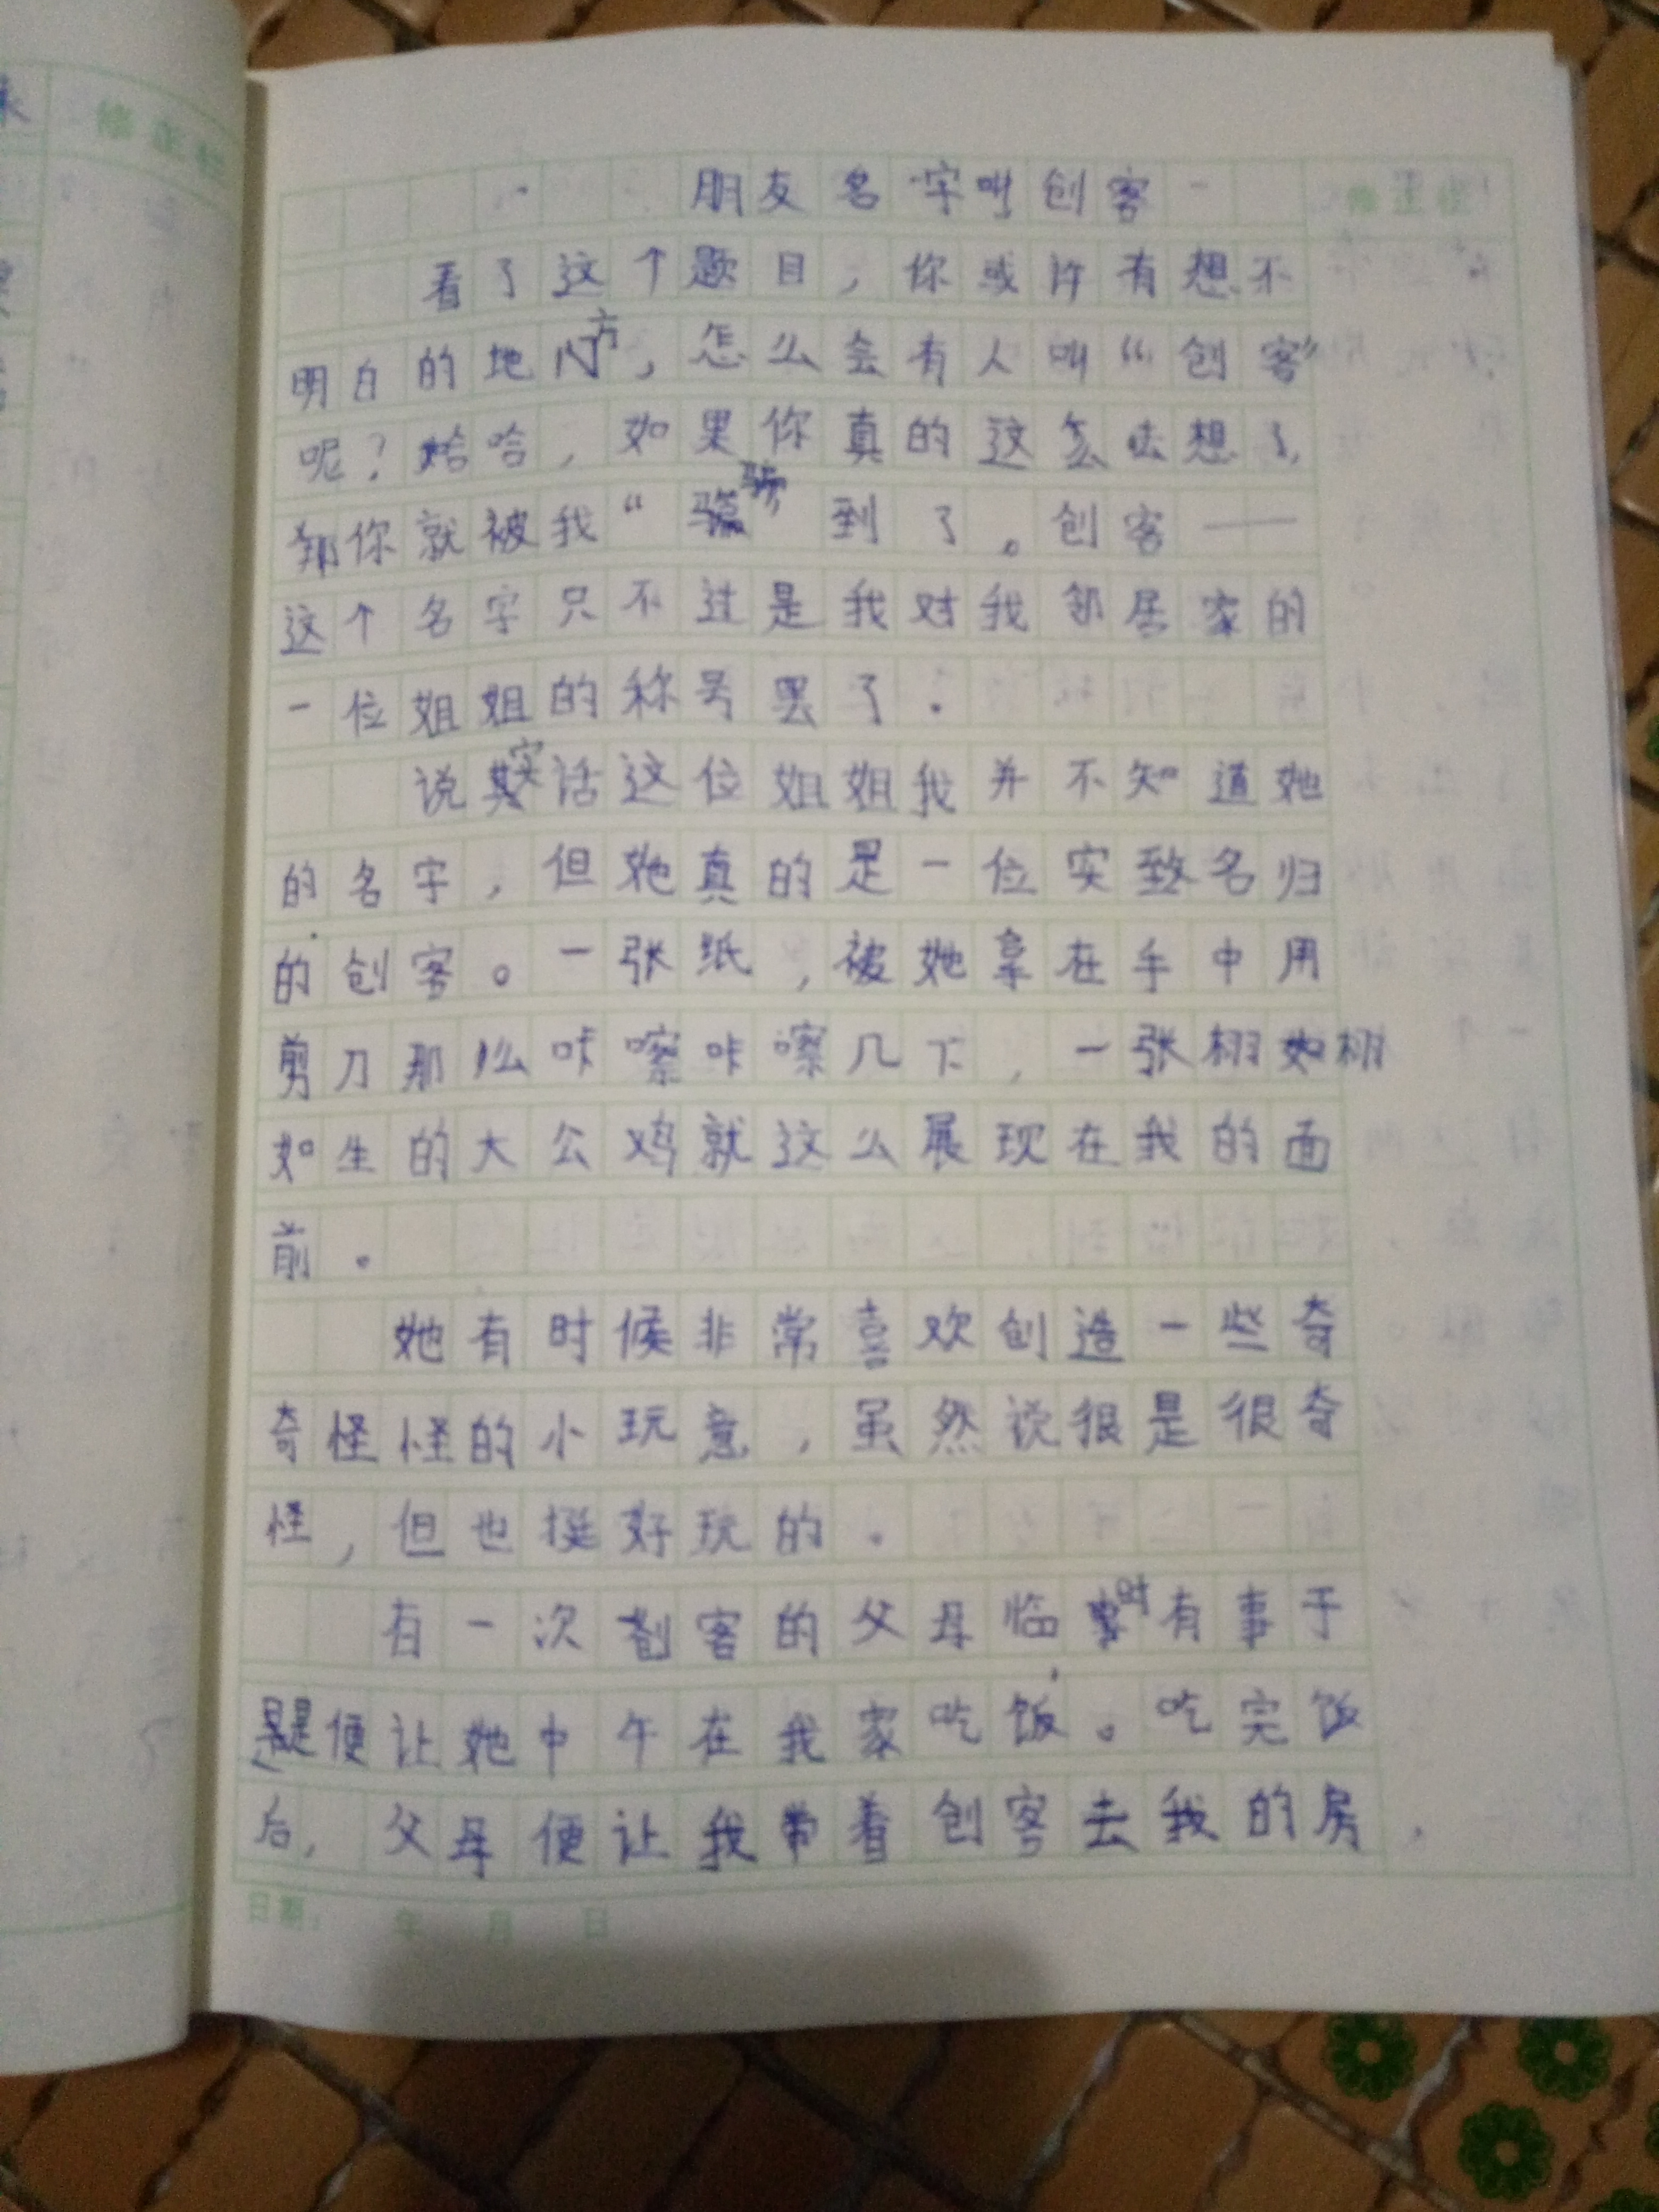 朋友名字叫创客
修正栏
看了这个题目，你或许有想不
明白的地方，怎么会有人叫“创客”
呢？哈哈，如果你真的这么去想了，
那你就被我“骗”到了。创客——
这个名字只不过是我对我邻居家的
一位姐姐的称号罢了。
说实话这位姐姐我并不知道她
的名字，但她真的是一位实致名归
的创客。一张纸，被她拿在手中用
剪刀那么咔嚓咔嚓几下，一张栩如栩
如生的大公鸡就这么展现在我的面
前。
她有时候非常喜欢创造一些奇
奇怪怪的小玩意，虽然说很是很奇
怪，但也挺好玩的。
有一次创客的父母临时有事于
是便让她中午在我家吃饭。吃完饭
后，父母便让我带着创客去我的房，
日期： 年 月 日
修正栏